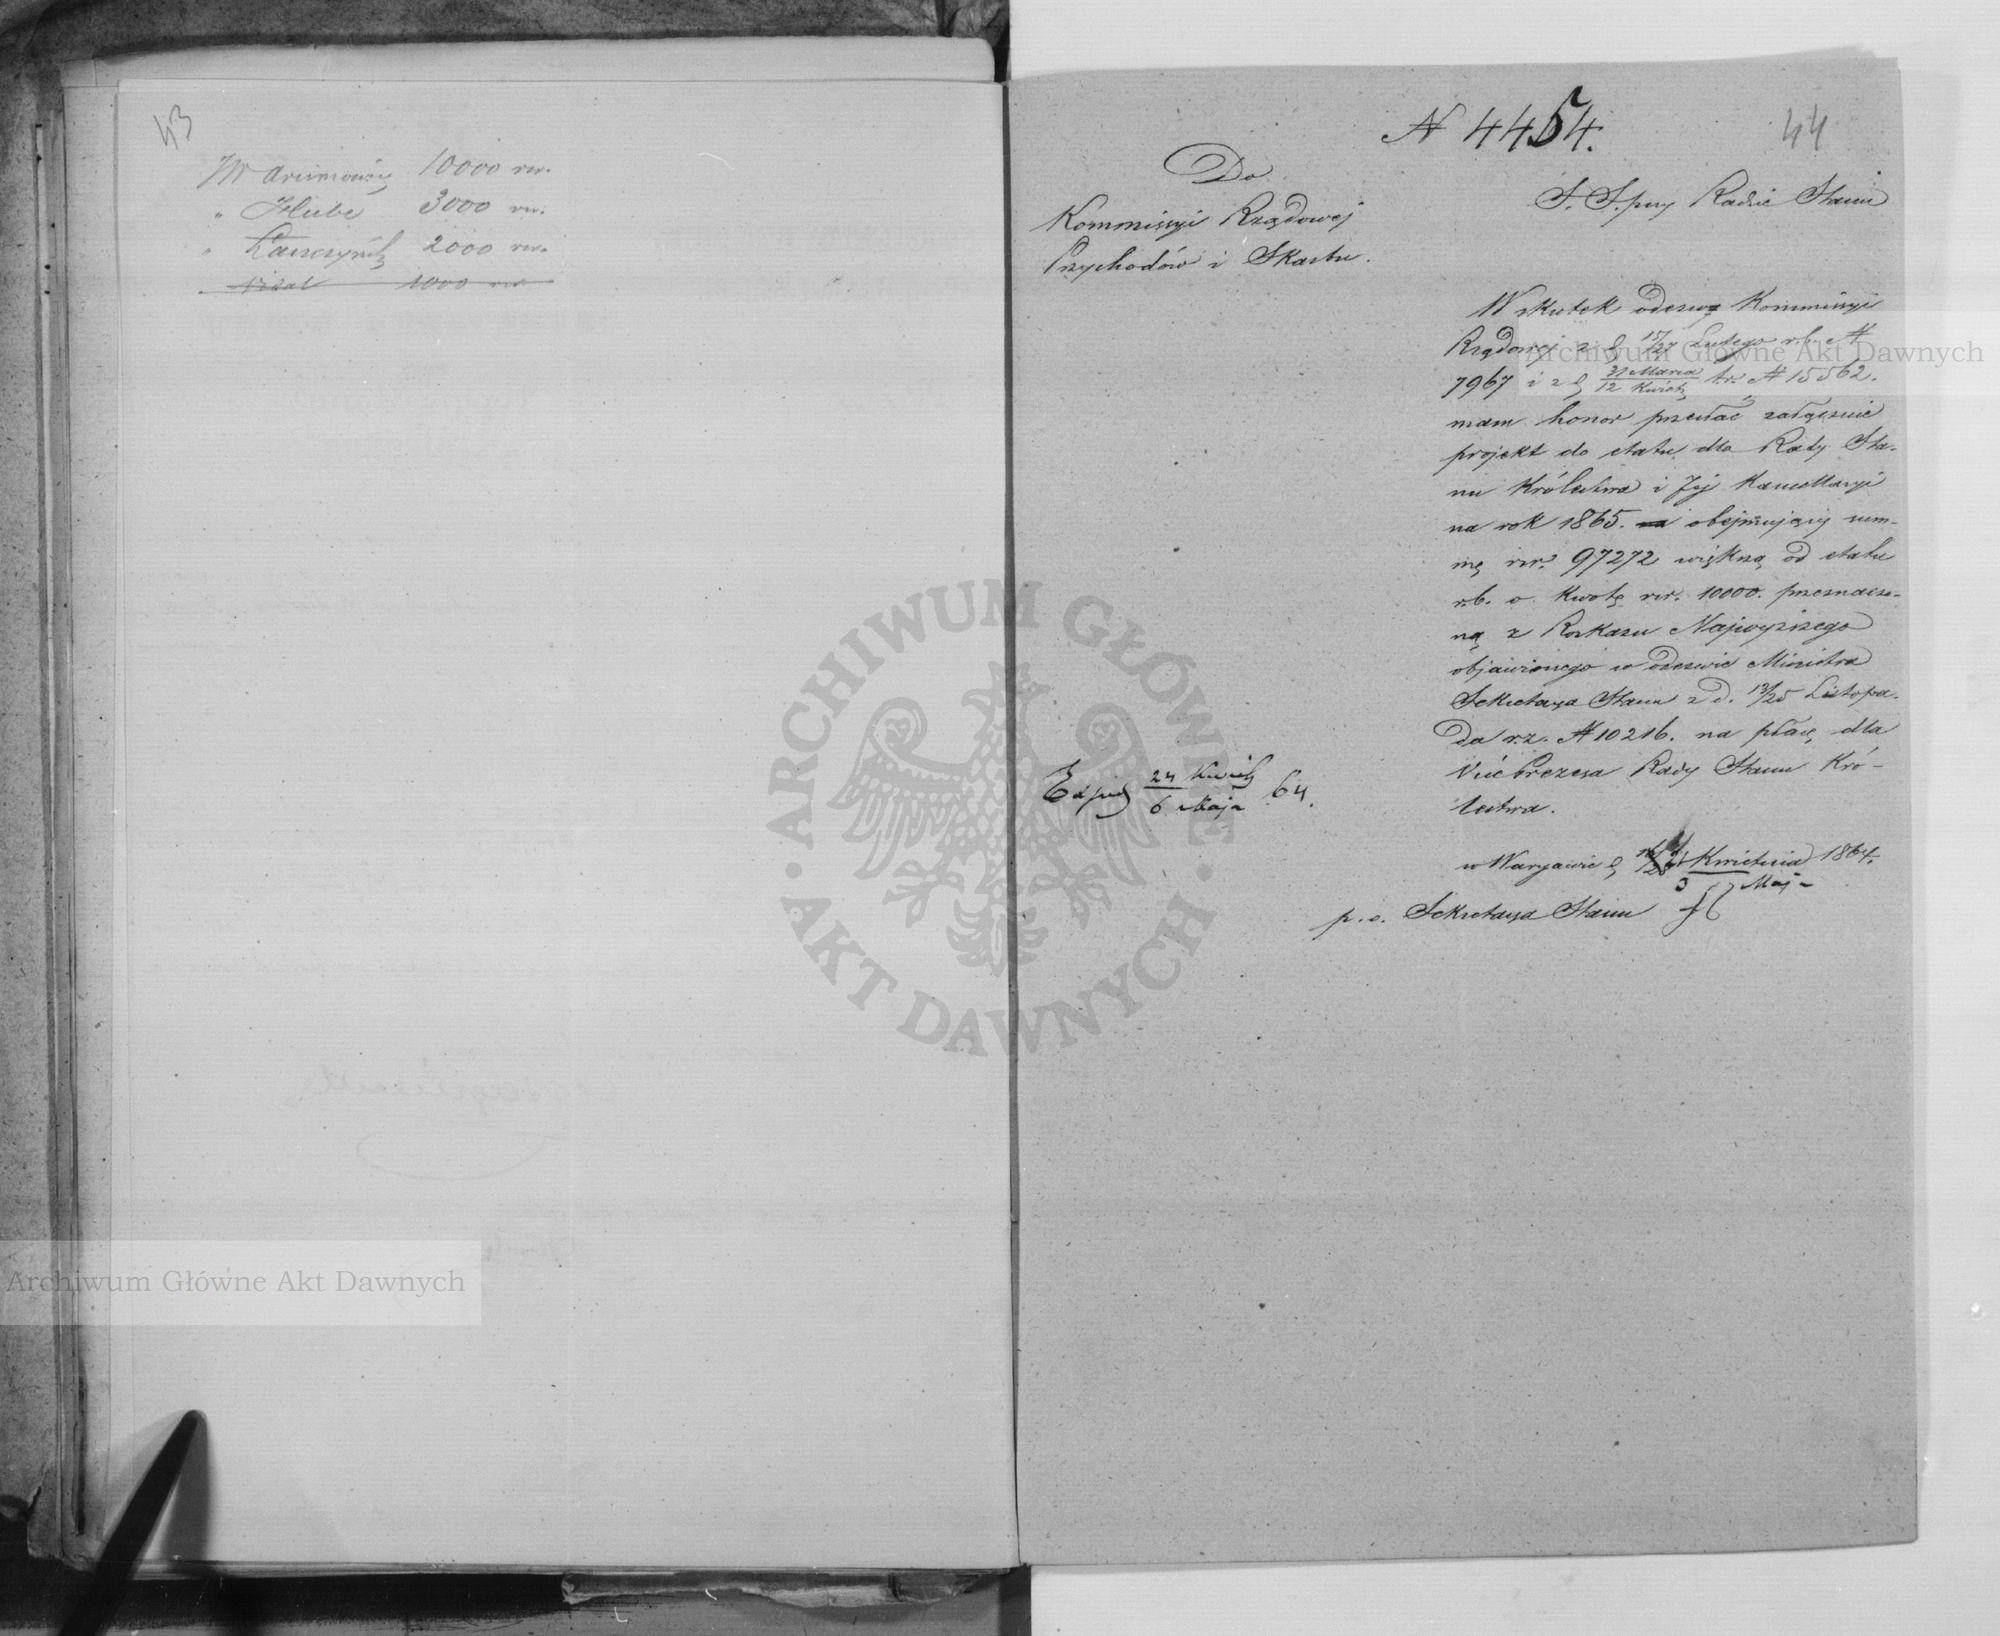 43
JW Arcimowicz 10000 rsr.
" Hube 3000 rsr.
" 2000 rsr.
" 1000 rsr
44
N 4454.
Do
Kommissyi Rządowej
Przychodów i Skarbu.
S. S. przy Radzie Stanu
W skutek odezwy Kommissyi
Rządowej z d. 15/27 Lutego r. b. N
7967 i z d. 31 Marca / 12 Kwiet. t.r. N 15562.
mam honor przesłać załącznie
projekt do etatu dla Rady Sta-
nu Królestwa i Jej Kancellaryi
na rok 1865. obejmujący sum-
mę rsr. 97272 większą od etatu
r.b. o kwotę rsr. 10000. przeznaczo-
ną z Rozkazu Najwyższego
objawionego w odezwie Ministra
Sekretarza Stanu z d. 13/25 Listopa-
da r.z. N 10216. na płacę dla
Vice Prezesa Rady Stanu Kró-
lestwa.
Exped 24 Kwiet / 6 Maja 64.
w Warszawie d. Kwietnia 1864.
3 Maja
p. o. Sekretarza Stanu
ARCHIWUM GŁÓWNE AKT DAWNYCH
Archiwum Główne Akt Dawnych
Archiwum Główne Akt Dawnych